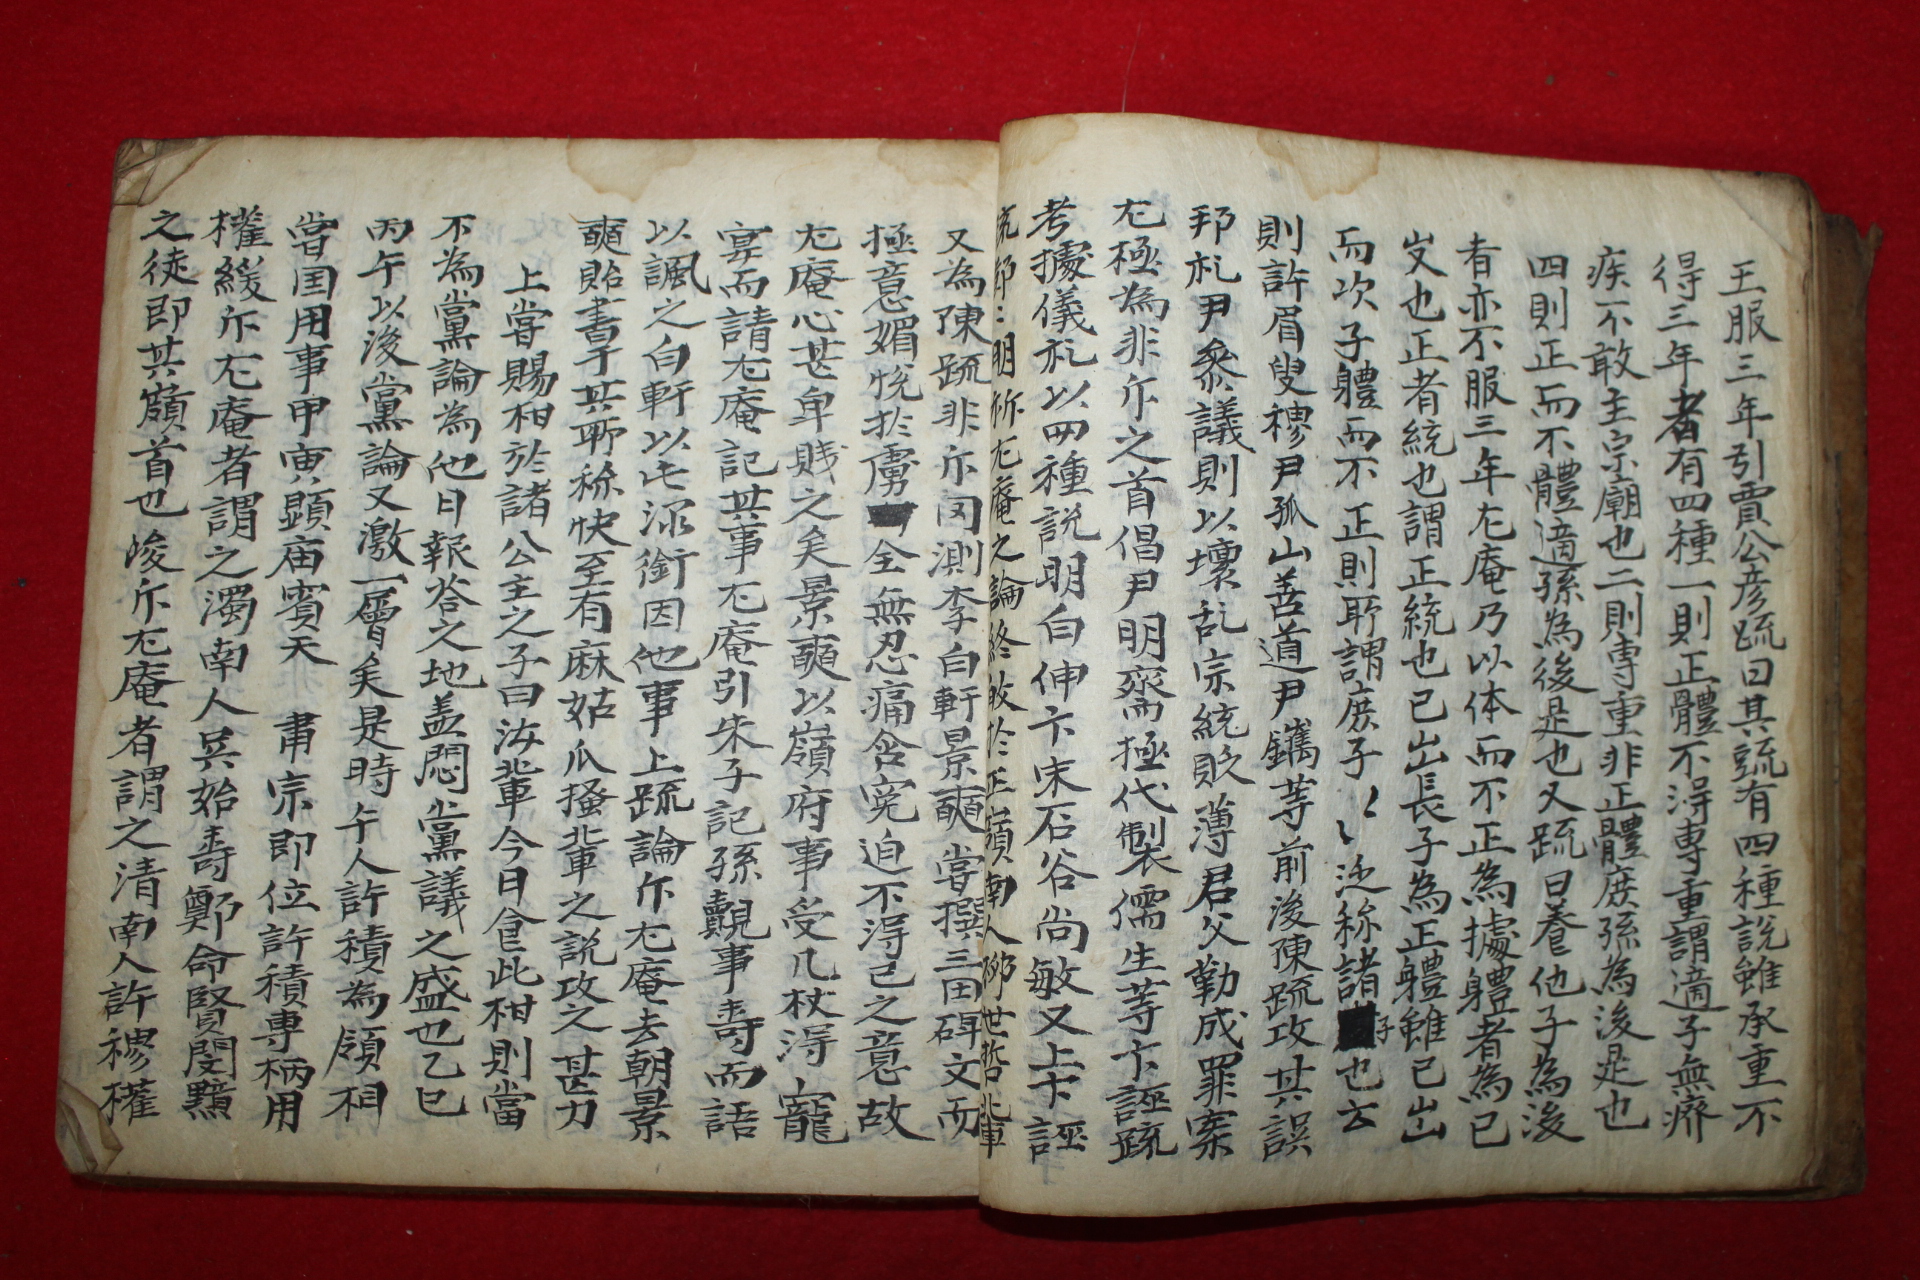 王服三年引賈公彦疏曰其疏有四種説雖承重不
得三年者有四種一則正體不淂專重謂適子無癠
疾不敢主宗廟也二則專重非正體庶孫為後是也
四則正而不體適孫為後是也又疏曰養他子為後
者亦不服三年尤庵乃以体而不正為據體者為已
也正者統也謂正統也已出長子為正體雖已出
而次子體而不正則所謂庶子泛称諸子也云
則許眉叟穆尹孤山善道尹鑴等前後陳疏攻其誤
邦礼尹叅議則以壞乱宗統貶薄君父勒成罪案
尤極為非斥之首倡尹明齋極代製儒生等卞誣疏
考據儀礼以四種説明白伸卞宋石谷尚敏又上卞誣
疏即明称尤庵之論終敗於正嶺南人柳世哲北軍
又為陳疏非斥罔測李白軒景奭甞撰三田碑文而
極意媚悅於虜全無忍痛含寃迫不淂已之意故
尤庵心甚卑賎之矣景奭以嶺府事受几杖淂寵
宴而請尤庵記其事尤庵引朱子記孫覿事壽而語
以諷之白軒以此深銜因他事上疏論斥尤庵去朝景
奭貽書于其所称快至有麻姑爪搔輩之説攻之甚力
上甞賜柑於諸公主之子曰汝輩今日食此柑則當
不為黨論為他日報答之地盖悶黨議之盛也乙巳
丙午以後黨論又激一層矣是時午人許積為領相
當國用事甲寅顕庙賓天 肅宗即位許積專柄用
權緩斥尤庵者謂之濁南人吴始壽鄭命賢閔黯
之徒即其嶺首也峻斥尤庵者謂之清南人許穆權